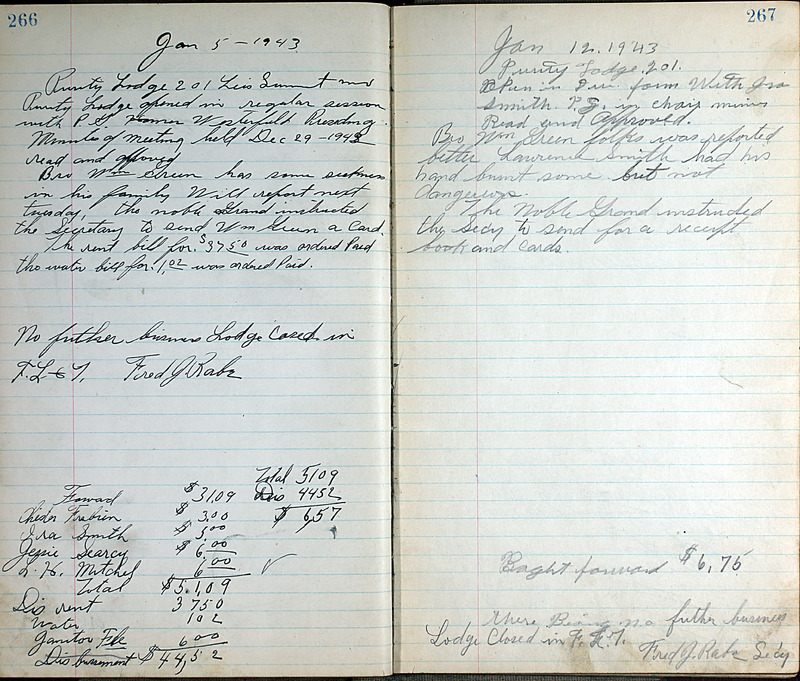 266
Jan 5 - 1943
Purity Lodge 201 Lees Summit mo
Purity Lodge opened in regular session
with P G Homer Westerfield Presiding.
Minutes of meeting held Dec 29 - 1942
read and approved
Bro Wm Green has some sickness
in his family Will report next
tuesday, the noble Grand instructed
the Secretary to send Wm Green a Card.
The rent bill for $37.50 was ordered Paid
the water bill for 1,02 was ordered Paid.
No futher business Lodge Closed in
F. L & T. Fred J. Rabe
Total 5109
Forward $31.09 Dis 4452
Frebien $3.00 $6,57
Ira Smith $5.00
Jessie Searcy $6.00
L. H. Mitchel 6.00
Total $5.1.09
Dis rent 3750
Water 102
Janitor 600
Disbursement $44,52
267
Jan 12. 1943
Purity Lodge. 201.
Open in Due form With Ira
Smith P.G. in chair minus
Read and Approved.
Bro Wm Green folks was reported
better Lawrence Smith had his
hand burnt some but not
dangerous.
The Noble Grand instructed
the Secy to send for a receipt
book and cards.
Bught forward $6,75
there Being no futher business
Lodge Closed in F. L. T.
Fred J. Rabe Secy